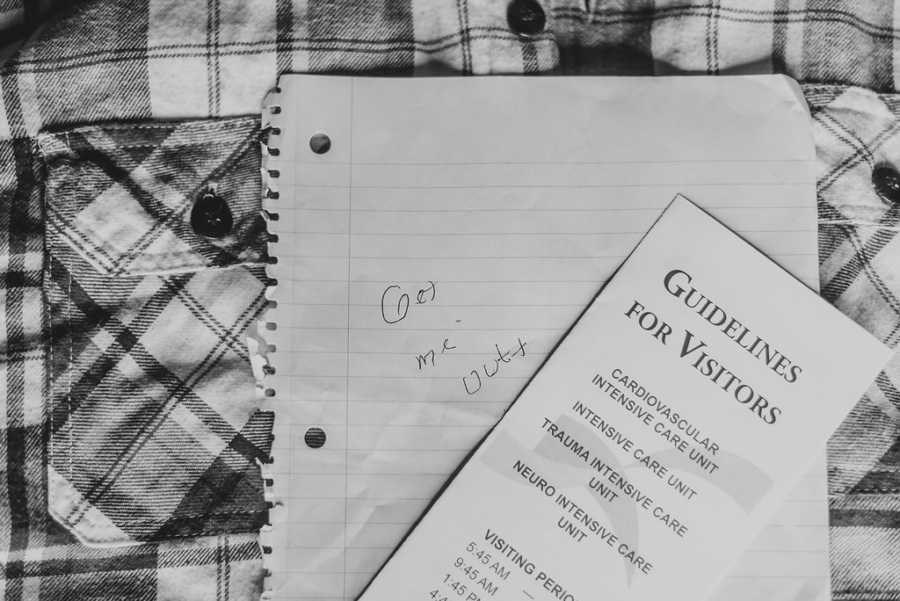 Get
me
out
GUIDELINES
FOR VISITORS
CARDIOVASCULAR
INTENSIVE CARE UNIT
INTENSIVE CARE UNIT
TRAUMA INTENSIVE CARE
UNIT
NEURO INTENSIVE CARE
UNIT
VISITING PERIO
5:45 AM
9:45 AM
1:45 PM